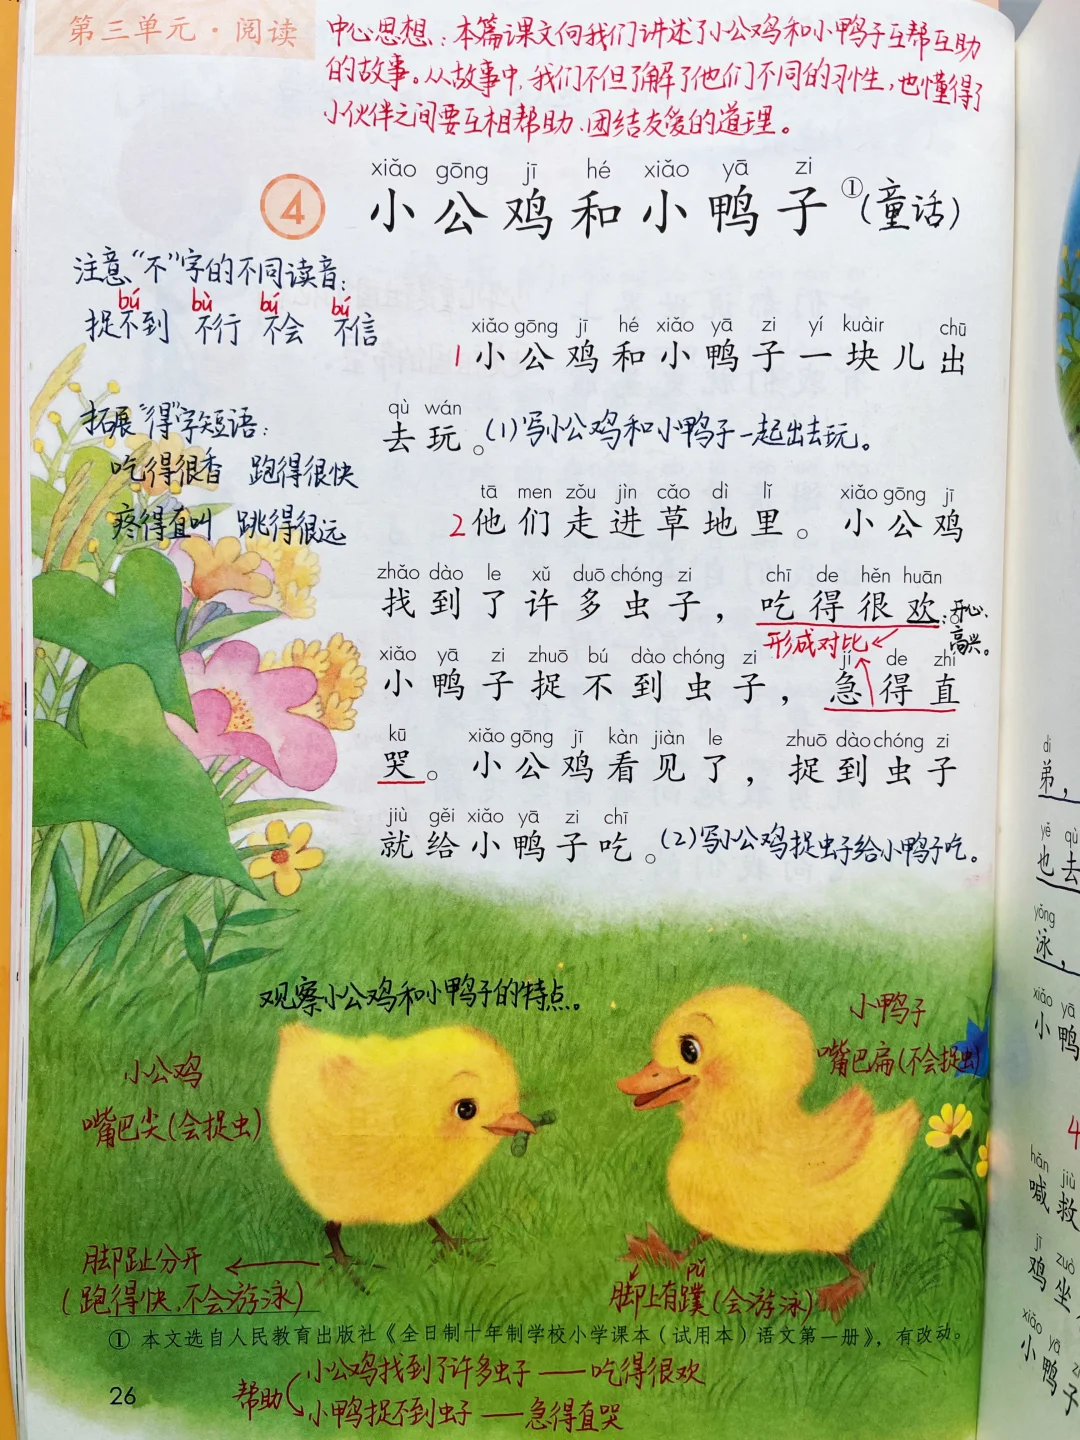 第三单元·阅读
中心思想:本篇课文向我们讲述了小公鸡和小鸭子互帮互助
的故事。从故事中,我们不但了解了他们不同的习性,也懂得了
小伙伴之间要互相帮助、团结友爱的道理。
xiǎo gōng jī hé xiǎo yā zi
4 小公鸡和小鸭子①(童话)
注意“不”字的不同读音:
bú bù bú bú
捉不到 不行 不会 不信
xiǎo gōng jī hé xiǎo yā zi yí kuàir chū
1小公鸡和小鸭子一块儿出
qù wán
去玩。(1)写小公鸡和小鸭子一起出去玩。
拓展“得”字短语:
吃得很香 跑得很快
疼得直叫 跳得很远
tā men zǒu jìn cǎo dì lǐ xiǎo gōng jī
2他们走进草地里。小公鸡
zhǎo dào le xǔ duō chóng zi chī de hěn huān
找到了许多虫子,吃得很欢
:开心、
高兴。
形成对比
xiǎo yā zi zhuō bú dào chóng zi jí de zhí
小鸭子捉不到虫子,急得直
kū xiǎo gōng jī kàn jiàn le zhuō dào chóng zi
哭。小公鸡看见了,捉到虫子
jiù gěi xiǎo yā zi chī
就给小鸭子吃。(2)写小公鸡捉虫子给小鸭子吃。
观察小公鸡和小鸭子的特点。
小公鸡
嘴巴尖(会捉虫)
小鸭子
嘴巴扁(不会捉虫)
脚趾分开
(跑得快,不会游泳)
pǔ
脚上有蹼(会游泳)
① 本文选自人民教育出版社《全日制十年制学校小学课本(试用本)语文第一册》,有改动。
小公鸡找到了许多虫子——吃得很欢
帮助
小鸭捉不到虫子——急得直哭
26
di
弟,
yě qù
也去
yǒng
泳,
xiǎo yā
小鸭
4
hǎn jiù
喊救
jī zuò
鸡坐
xiǎo yā zi
小鸭子